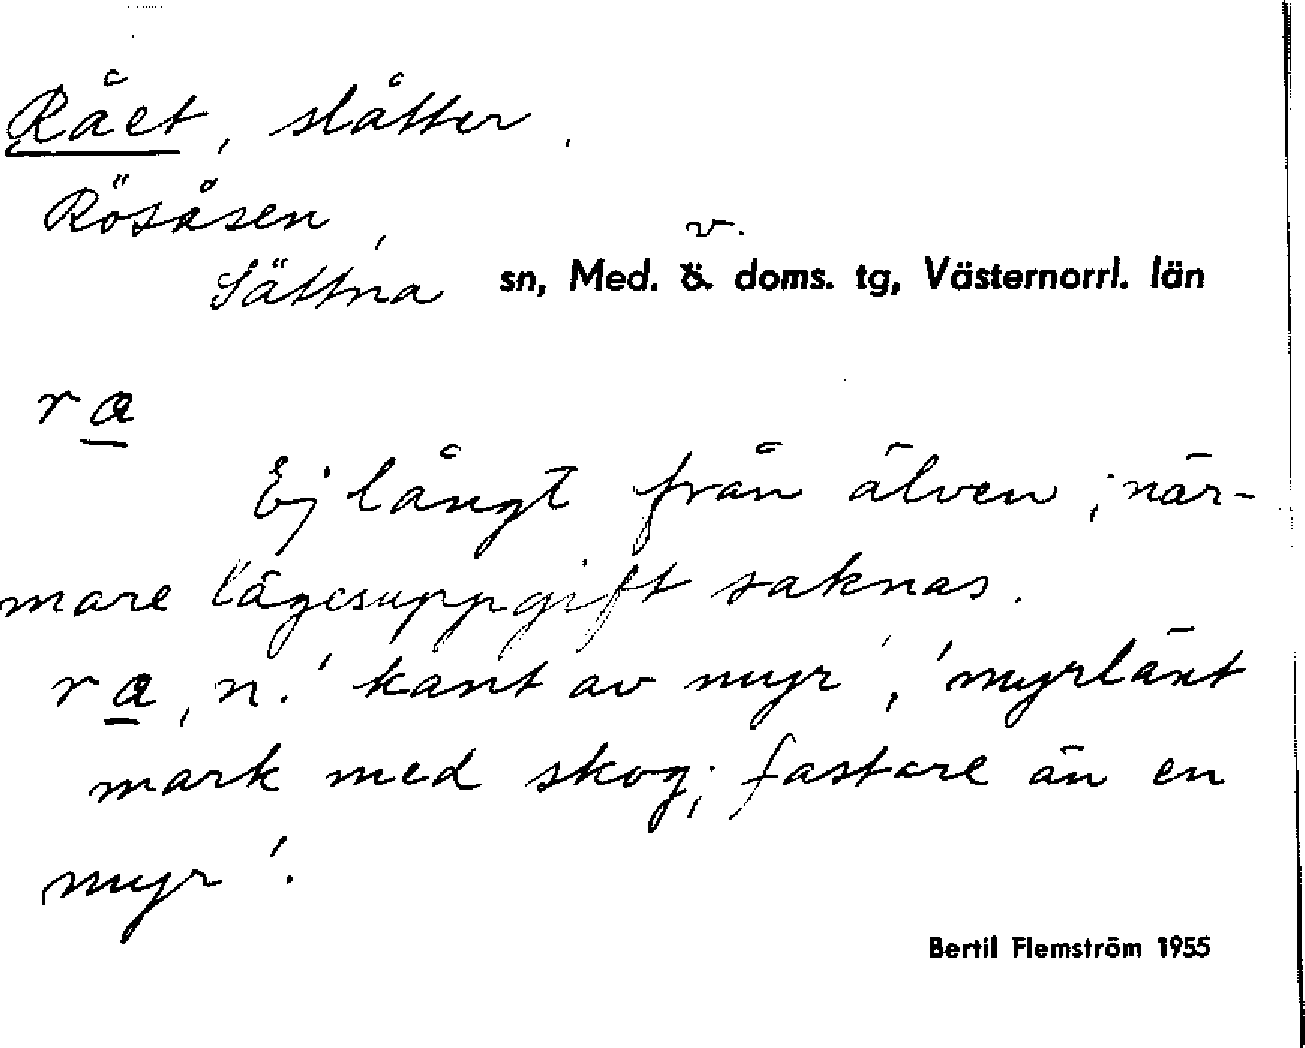 Rået, slåtter.
Rösåsen,
v.
Sättna sn, Med. ö. doms. tg, Västernorrl. län
ra
Ej långt från älven; när-
mare lägesuppgift saknas.
ra, n. 'kant av myr', 'myrlänt
mark med skog; fastare än en
myr'.
Bertil Flemström 1955